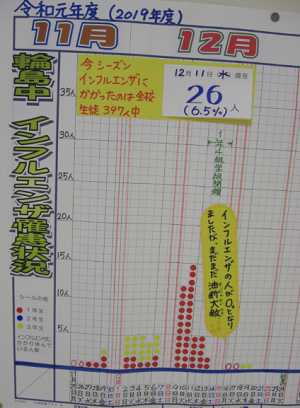 令和元年度(2019年度)
11月
12月
輪島中 インフルエンザ罹患状況
今シーズン
インフルエンザに
かかったのは全校
生徒397人中
12月11日(水)現在
26人
(6.5%)
35人
30人
25人
20人
15人
10人
5人
1年4組学級閉鎖
インフルエンザの人が0となり
ましたが、まだまだ油断大敵
シールの色
1年生
2年生
3年生
インフルエンザに
かかり休んで
いる人数